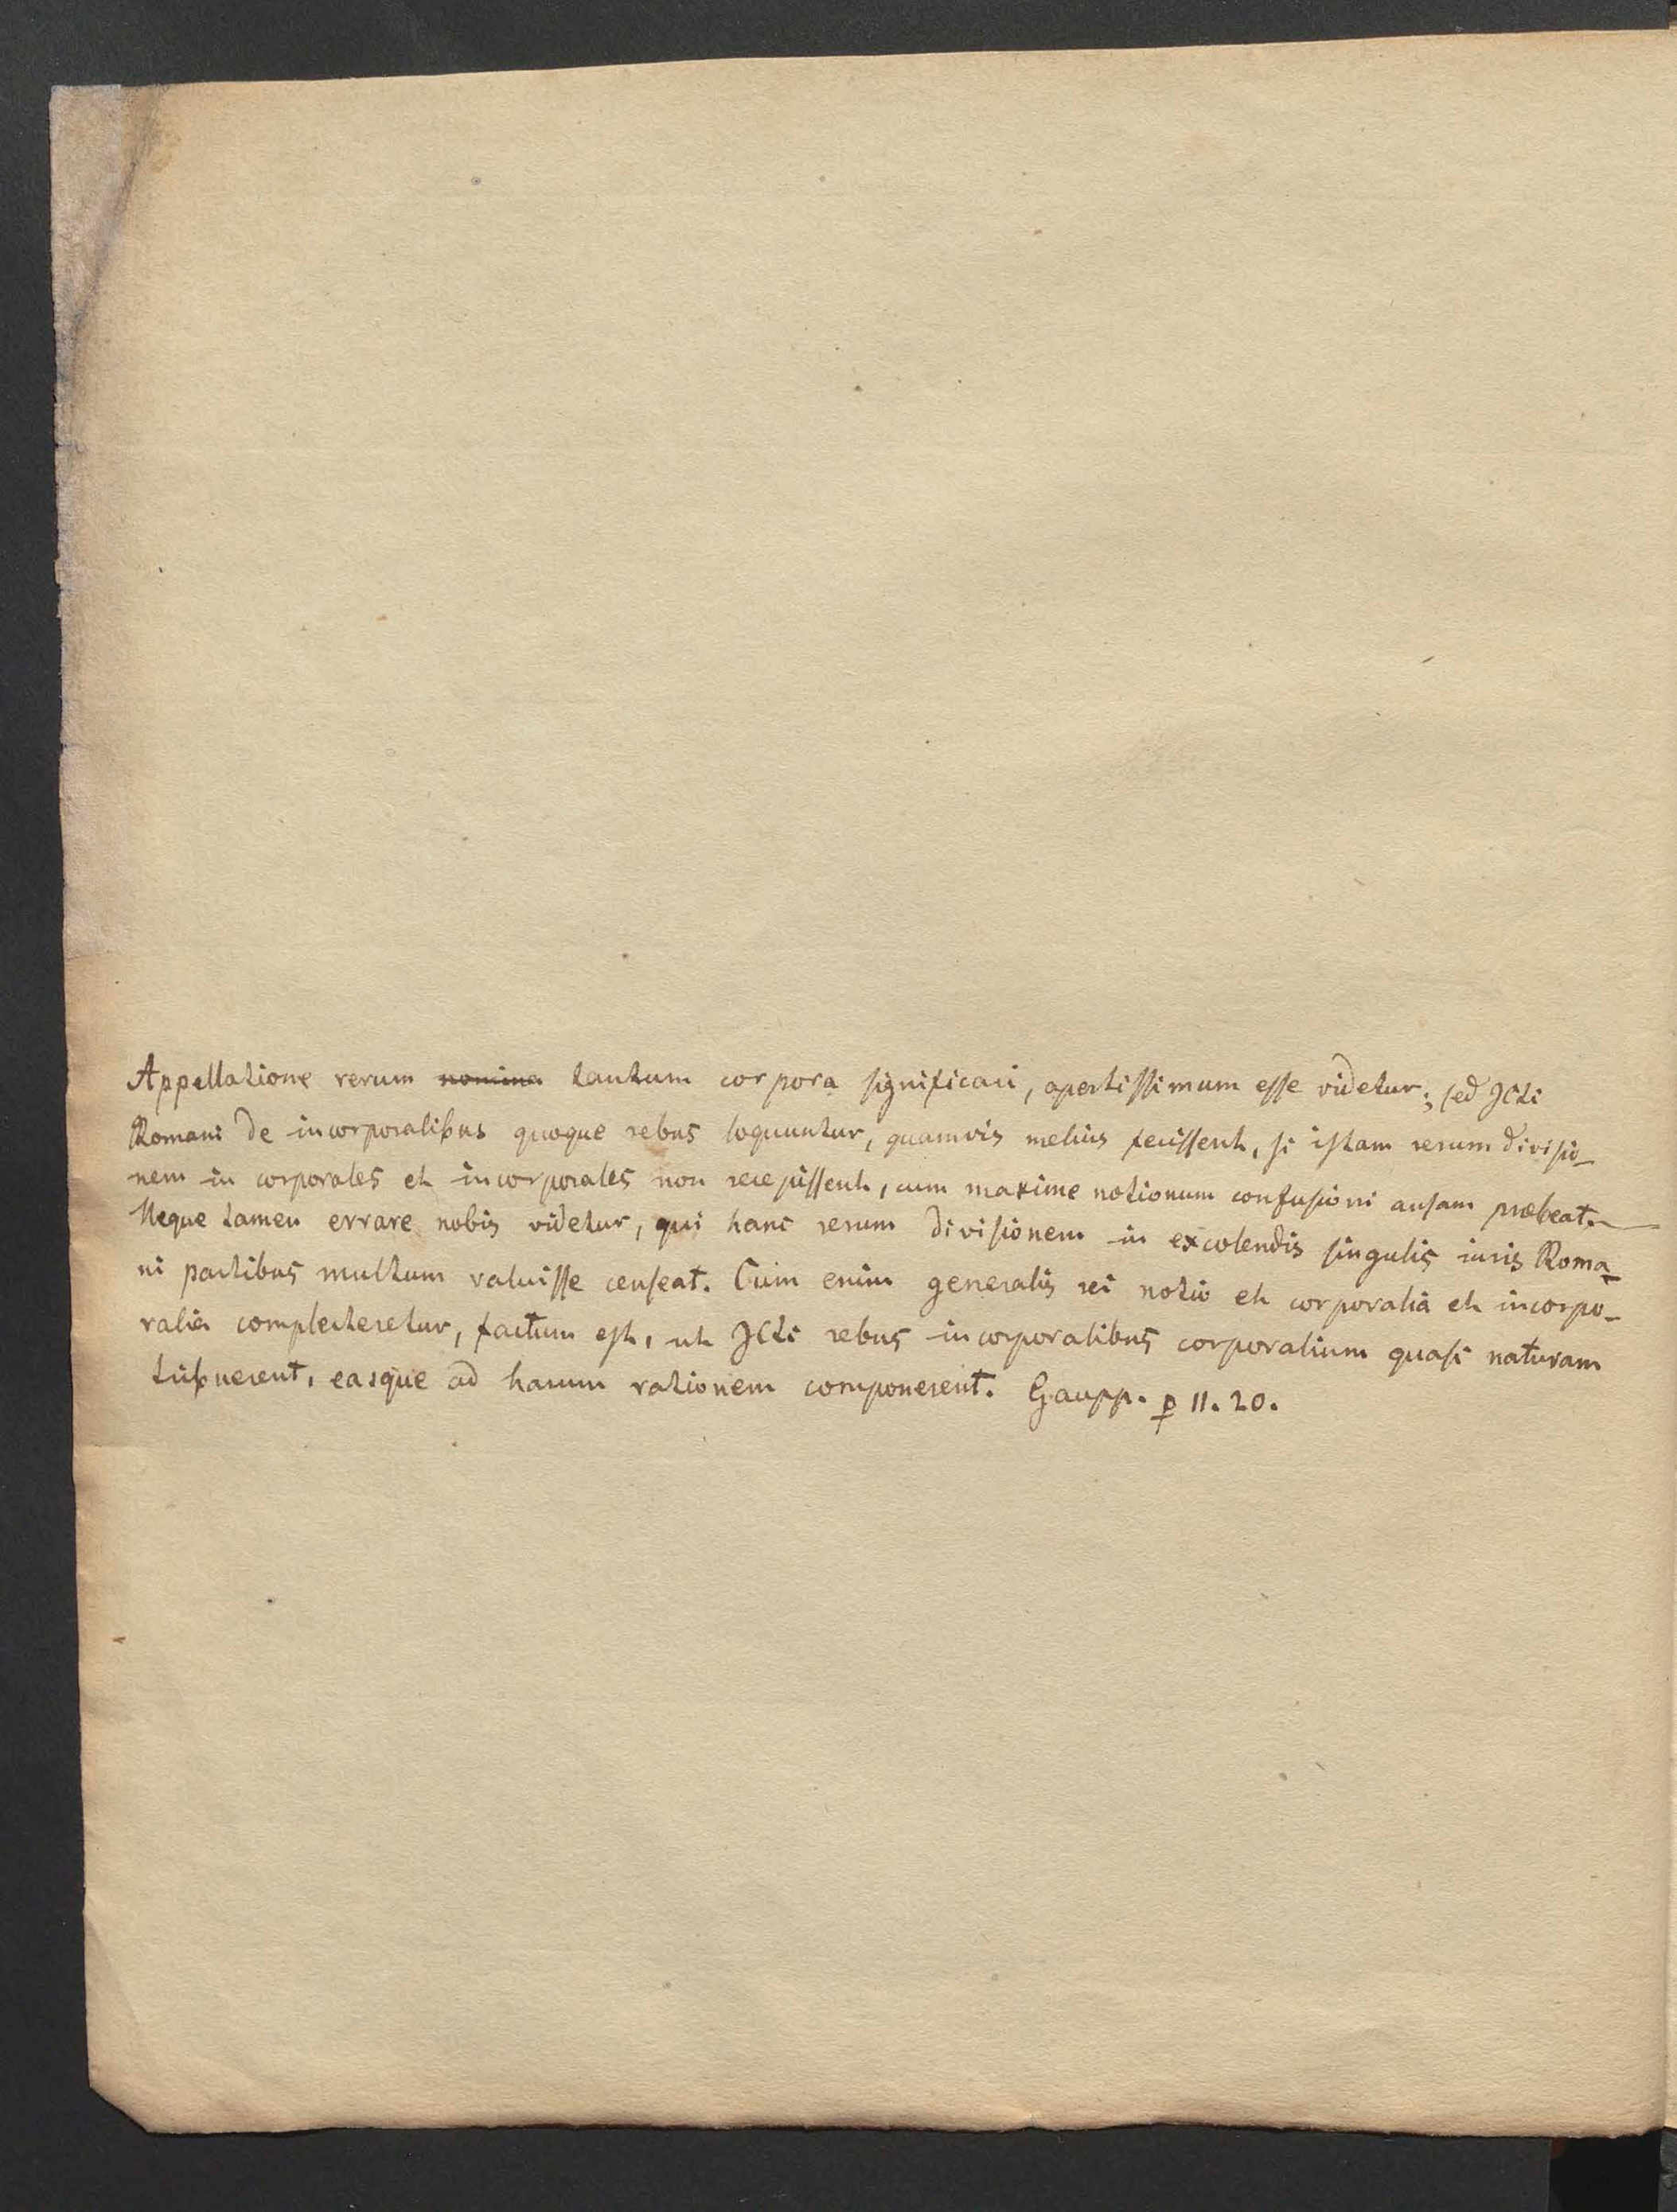 Appellatione rerum nomina tantum corpora significari, apertissimum esse videtur; sed JCti
Romani de incorporalibus quoque rebus loquuntur, quamvis melius fecissent, si istam rerum divisio-
nem in corporales et incorporales non recepissent, cum maxime notionum confusioni ansam præbeat.
Neque tamen errare nobis videtur, qui hanc rerum divisionem in excolendis singulis iuris Roma-
ni partibus multum valuisse censeat. Cum enim generalis rei notio et corporalia et incorpo-
ralia complecteretur, factum est, ut JCti rebus incorporalibus corporalium quasi naturam
tribuerent, easque ad harum rationem componerent. Gaupp. p 11. 20.